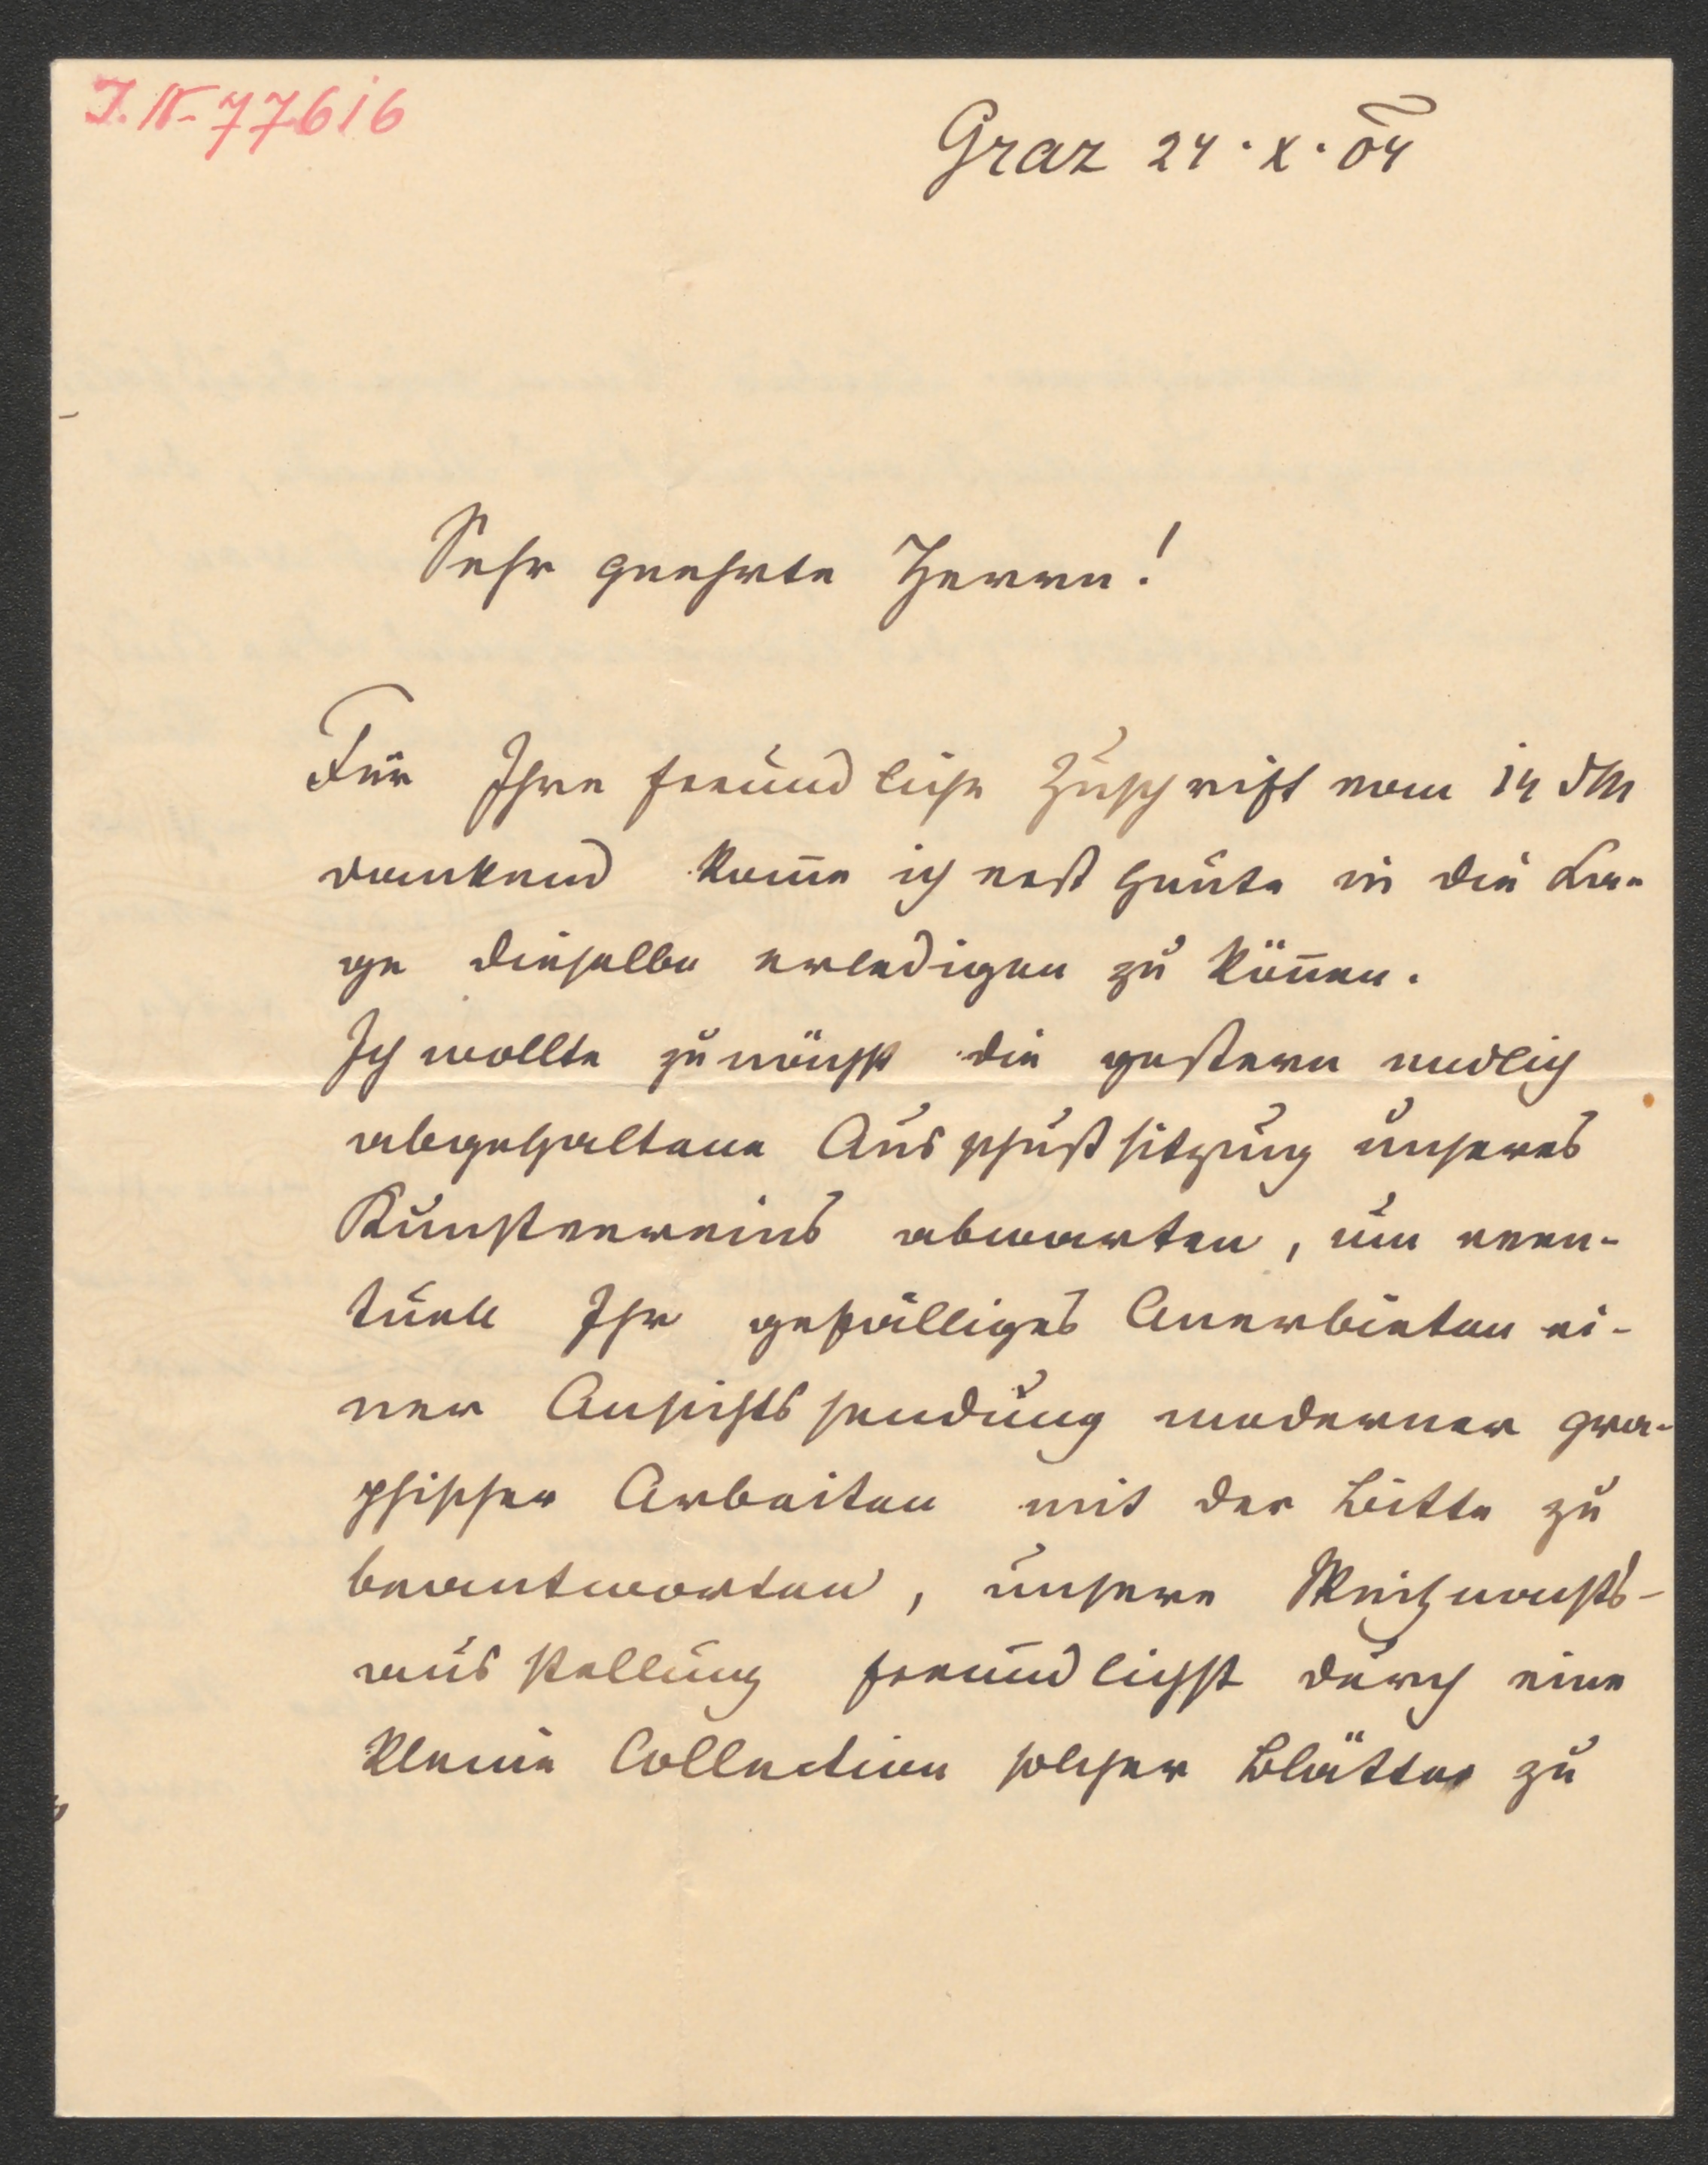 I.N. 77616
Graz 24·X·04
Sehr geehrte Herren!
Für Ihre freundliche Zuschrift vom 14 dM
dankend kom̅e ich erst heute in die La-
ge dieselbe erledigen zu kön̅en.
Ich wollte zunächst die gestern endlich
abgehaltene Ausschußsitzung unseres
Kunstvereins abwarten, um even-
tuell Ihr gefälliges Anerbieten ei-
ner Ansichtssendung moderner gra-
phischer Arbeiten mit der Bitte zu
beantworten, unsere Weihnachts-
ausstellung freundlichst durch eine
kleine Collection solcher Blätter zu